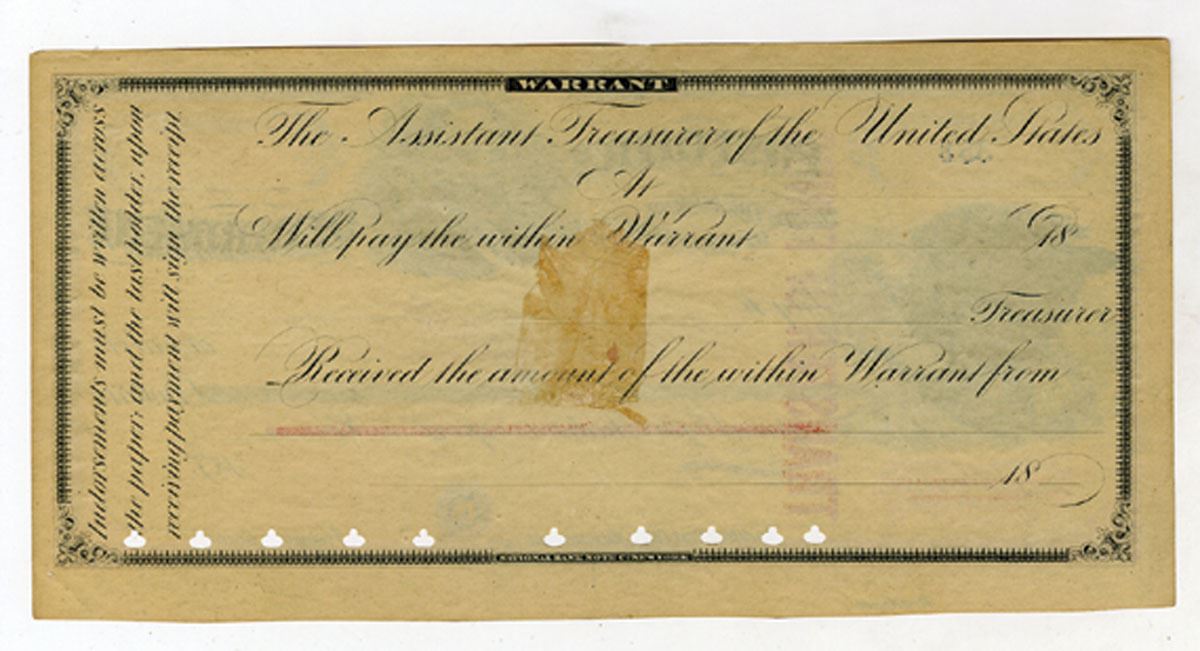 WARRANT
The Assistant Treasurer of the United States
At
Will pay the within Warrant 18
Treasurer
Received the amount of the within Warrant from
18
Indorsements must be written across
the paper and the last holder, upon
receiving payment will sign the receipt.
NATIONAL BANK NOTE CO. NEW YORK